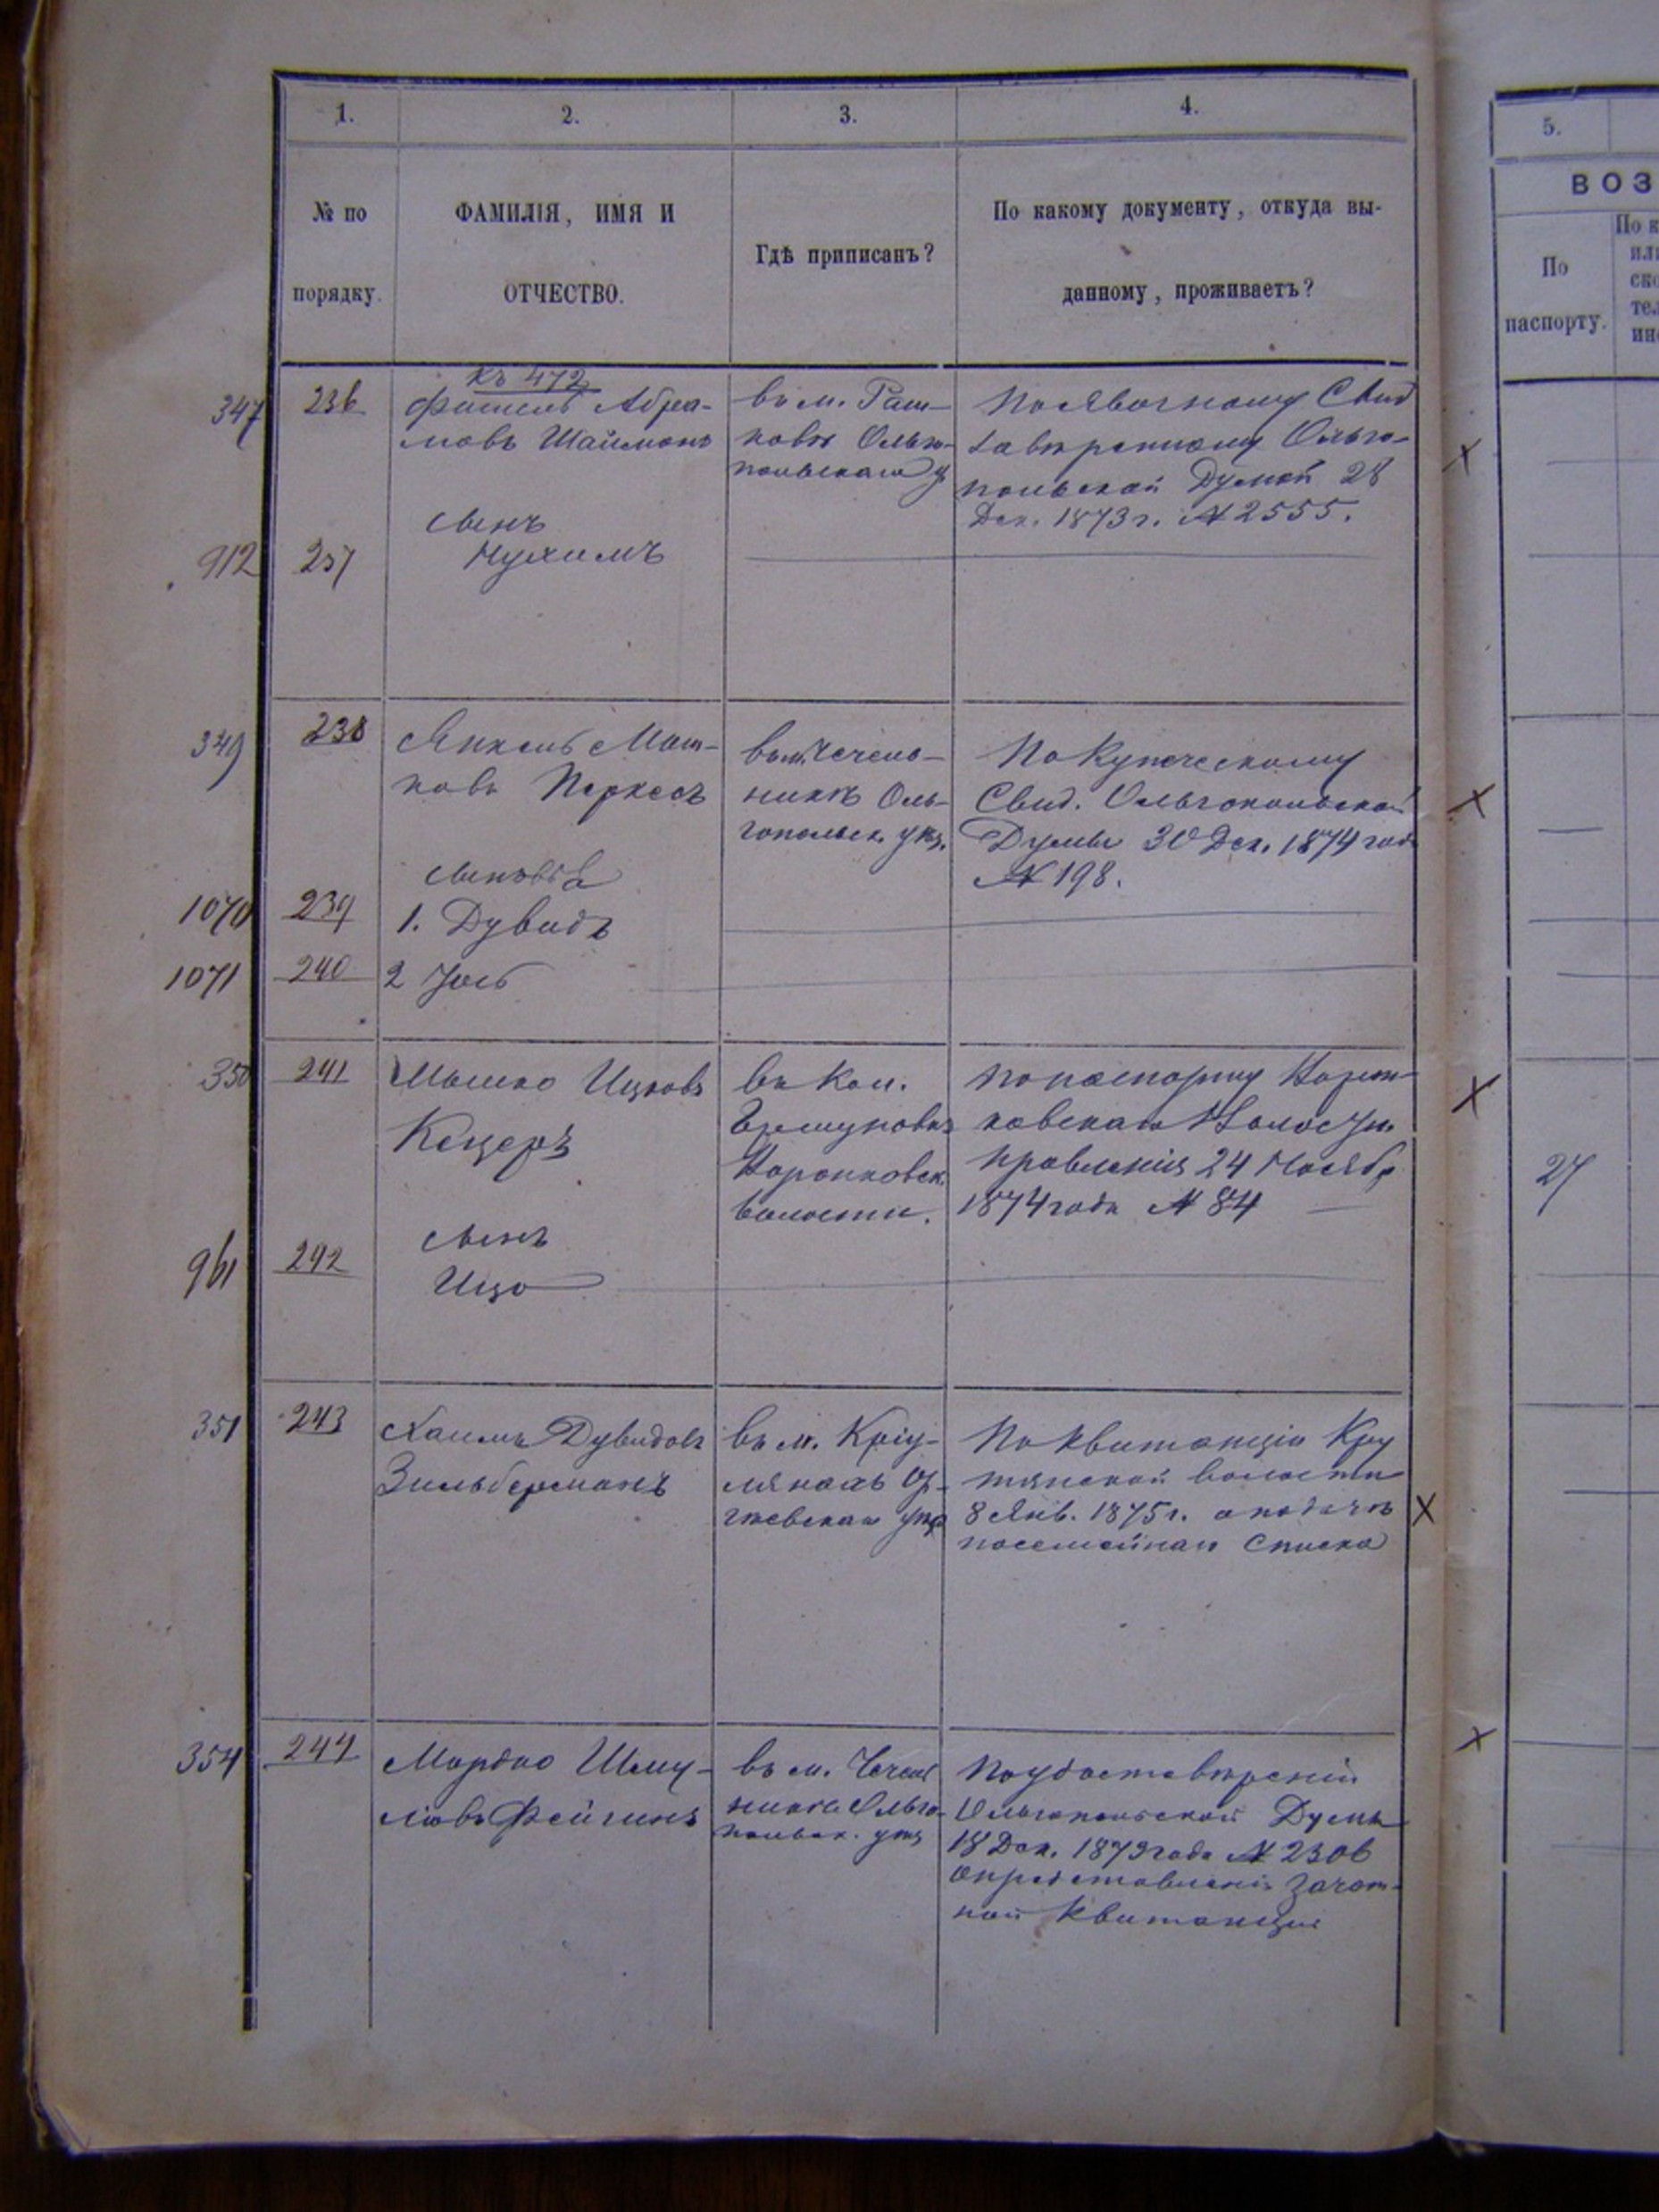 1.
2.
3.
4.
№ по
порядку.
ФАМИЛІЯ, ИМЯ И
ОТЧЕСТВО.
Гдѣ приписанъ?
По какому документу, откуда вы-
данному, проживаетъ?
347
236
Къ 472
Фишель Абра-
мовъ Шаймонъ
въ м. Раш-
ковѣ Ольго-
польскаго у
По явочному Свид
завѣренному Ольго-
польской Думой 28
Дек. 1873 г. № 2555.
912
237
сынъ
Нухимъ
349
238
Янкель Мош-
ковъ Перкесъ
въ м. Чечель-
никѣ Оль-
гопольск. уѣз.
По Купеческому
Свид. Ольгопольской
Думы 30 Дек. 1874 года
№ 198.
сыновья
1070
239
1. Дувидъ
1071
240
2 Іось
350
241
Мошко Ицковъ
Кецеръ
въ Кол.
волости.
по паспорту
правленія 24 Ноябр
1874 года № 84
961
242
сынъ
Ицо
351
243
Хаимъ Дувидовъ
Зильберманъ
въ м. Кріу-
лянахъ Ор-
гѣевскаго уѣз
По квитанціи Кру
тянской волости
8 Янв. 1875 г. о подачѣ
посемейнаго списка
354
244
Мордко Шму-
левъ Фейгинъ
въ м. Чечель
никѣ Ольго-
польск. уѣз
По удостовѣренію
Ольгопольской Думы
18 Дек. 1873 года № 2306
о представленіи зачет-
ной квитанціи
5.
ВОЗ
По
паспорту.
По к
или
ско
тел
ин
27